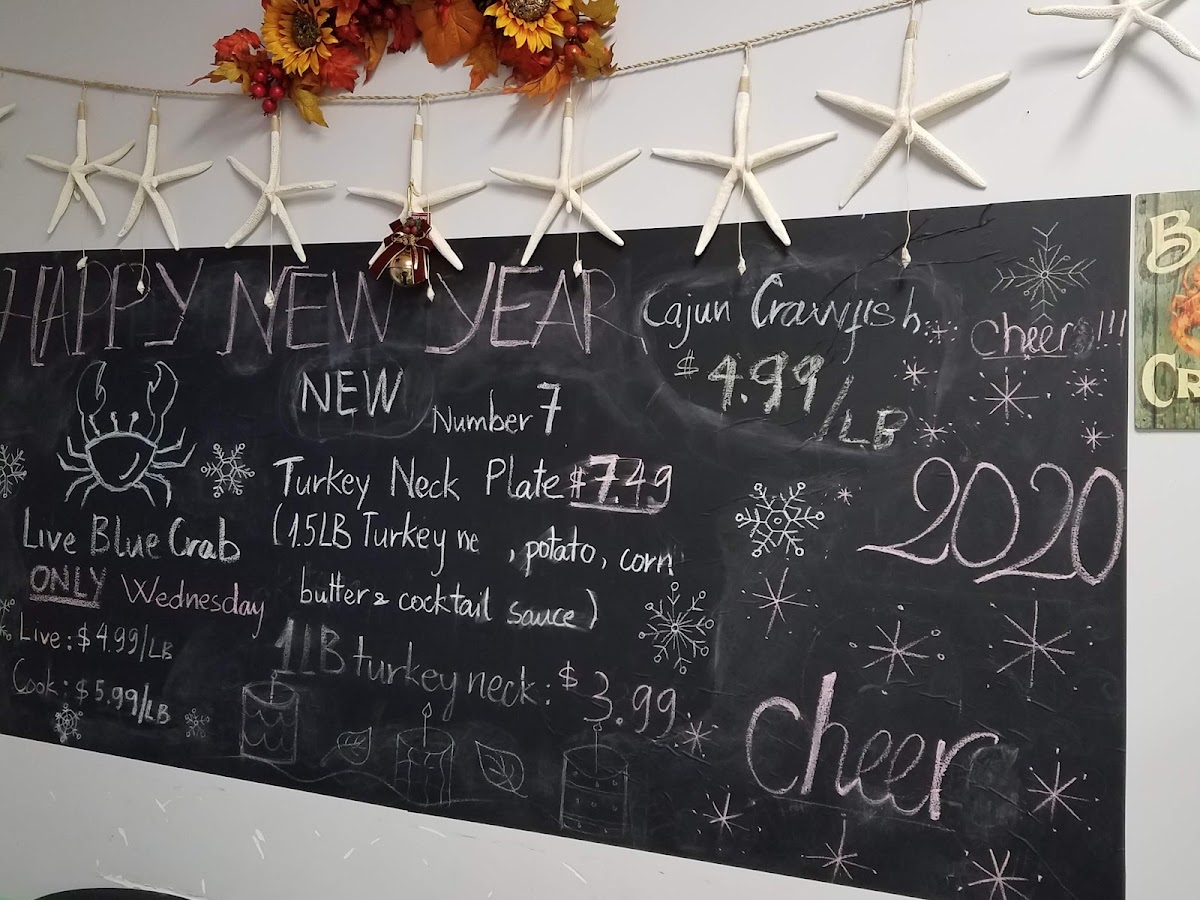 HAPPY NEW YEAR
Cajun Crawfish
$4.99/LB
cheers!!!
NEW
Number 7
Turkey Neck Plate $7.49
(1.5LB Turkey ne , potato, corn
butter & cocktail sauce)
1LB turkey neck: $3.99
Live Blue Crab
ONLY Wednesday
Live: $4.99/LB
Cook: $5.99/LB
2020
cheer